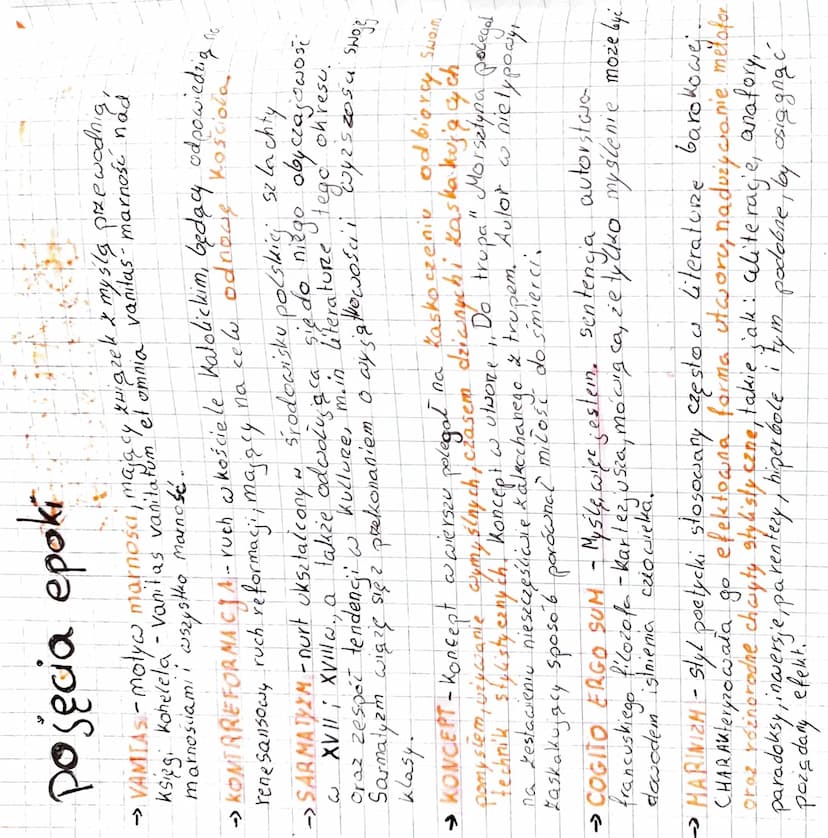 pojęcia epoki
→ VANITAS - motyw marności, mający związek z myślą przewodnią,
księgi Koheleta - vanitas vanitatum et omnia vanitas - marność nad
marnościami i wszystko marność.
→ KONTRREFORMACJA - ruch w kościele katolickim, będący odpowiedzią na
renesansowy ruch reformacji, mający na celu odnowę kościoła.
→ SARMATYZM - nurt ukształcony w środowisku polskiej szlachty
w XVII i XVIII w, a także odwołująca się do niego obyczajowość
oraz zespół tendencji w kulturze, m.in literaturze tego okresu.
Sarmatyzm wiąże się z przekonaniem o wyjątkowości i wyższości swojej
klasy.
→ KONCEPT - koncept w wierszu polegał na zaskoczeniu odbiorcy swoim
pomysłem, używanie wymyślnych, czasem dziwnych i zaskakujących
technik stylistycznych. Koncept w utworze "Do trupa" Morsztyna polegał
na zestawieniu nieszczęśliwie zakochanego z trupem. Autor w nietypowy,
zaskakujący sposób porównał miłość do śmierci.
→ COGITO ERGO SUM - Myślę, więc jestem. sentencja autorstwa
francuskiego filozofa - Kartezjusza, mówiąca, że tylko myślenie może być
dowodem istnienia człowieka.
→ MARINIZM - styl poetycki stosowany często w literaturze barokowej.
CHARAKteryzowała go efektowna forma utworu, nadużywanie metafor
oraz różnorodne chwyty stylistyczne, takie jak: aliteracje, anafory,
paradoksy, inwersje, parentezy, hiperbole i tym podobne, by osiągnąć
pożądany efekt.